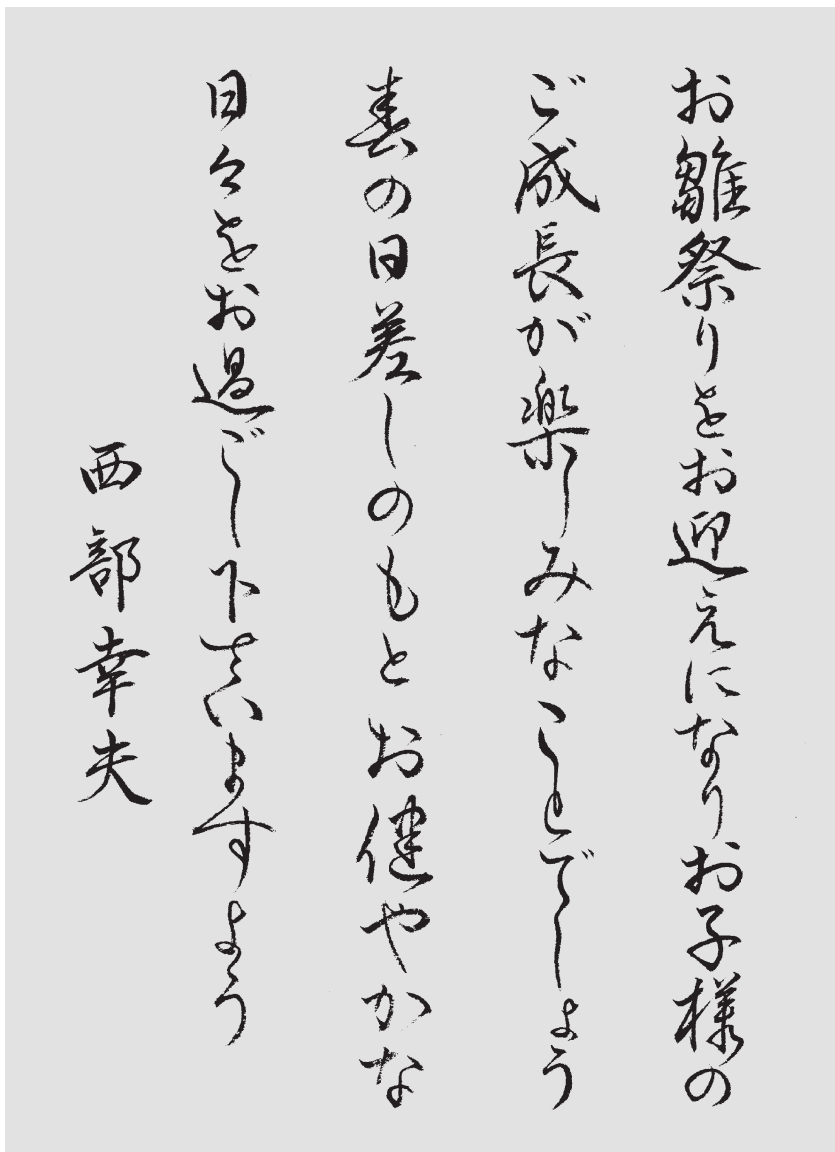 お雛祭りをお迎えになりお子様の
ご成長が楽しみなことでしょう
春の日差しのもとお健やかな
日々をお過ごし下さいますよう
西部幸夫